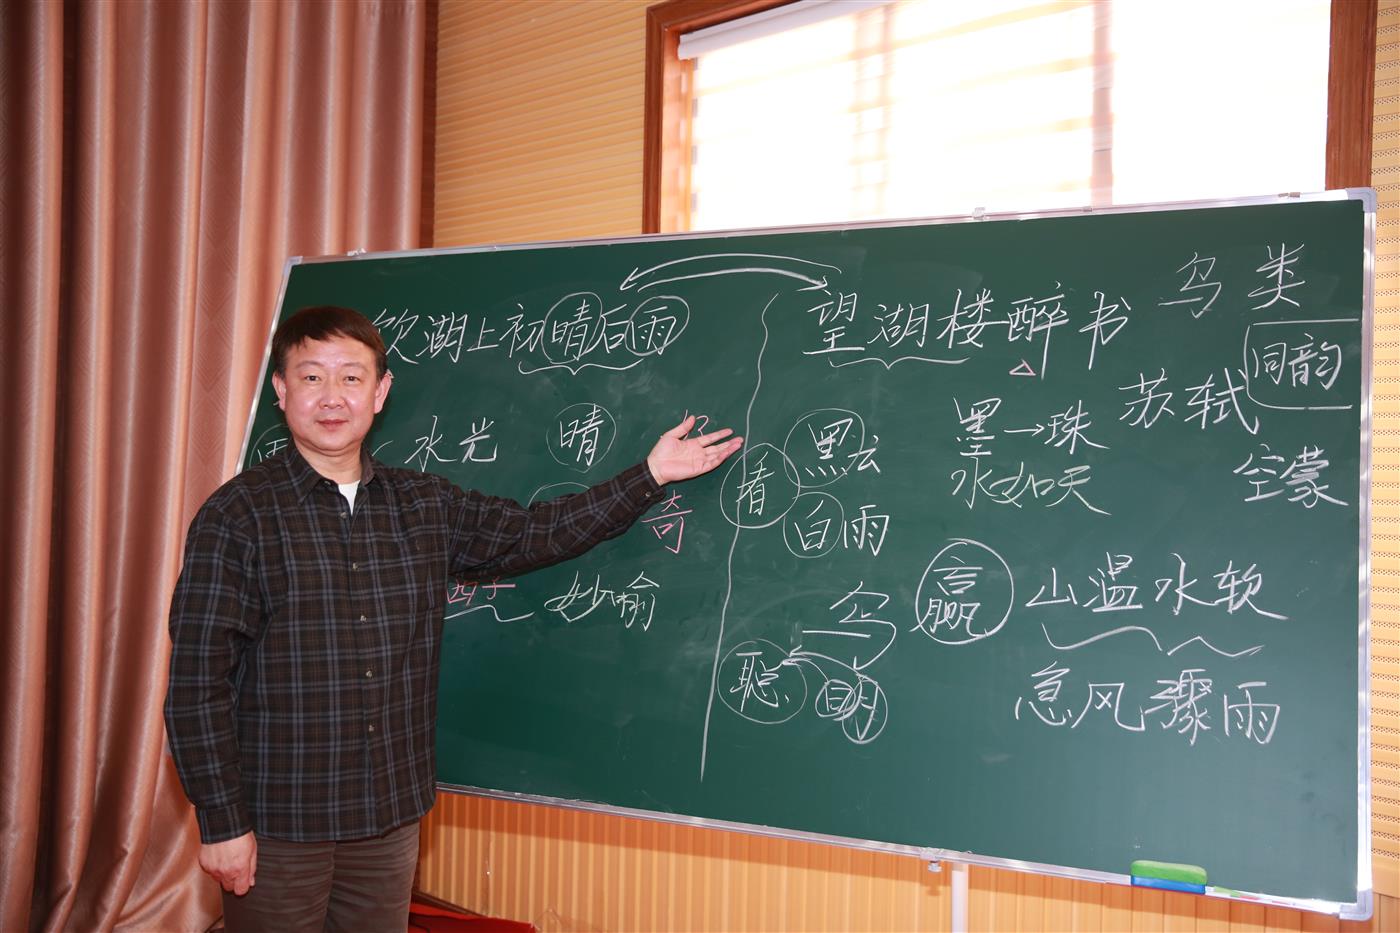 饮湖上初晴后雨
水光 晴
好
奇
西子 妙喻
望湖楼醉书
鸟类
同韵
苏轼
空蒙
看
黑云
白雨
墨→珠
水如天
鸟
聪明
赢
山温水软
急风骤雨